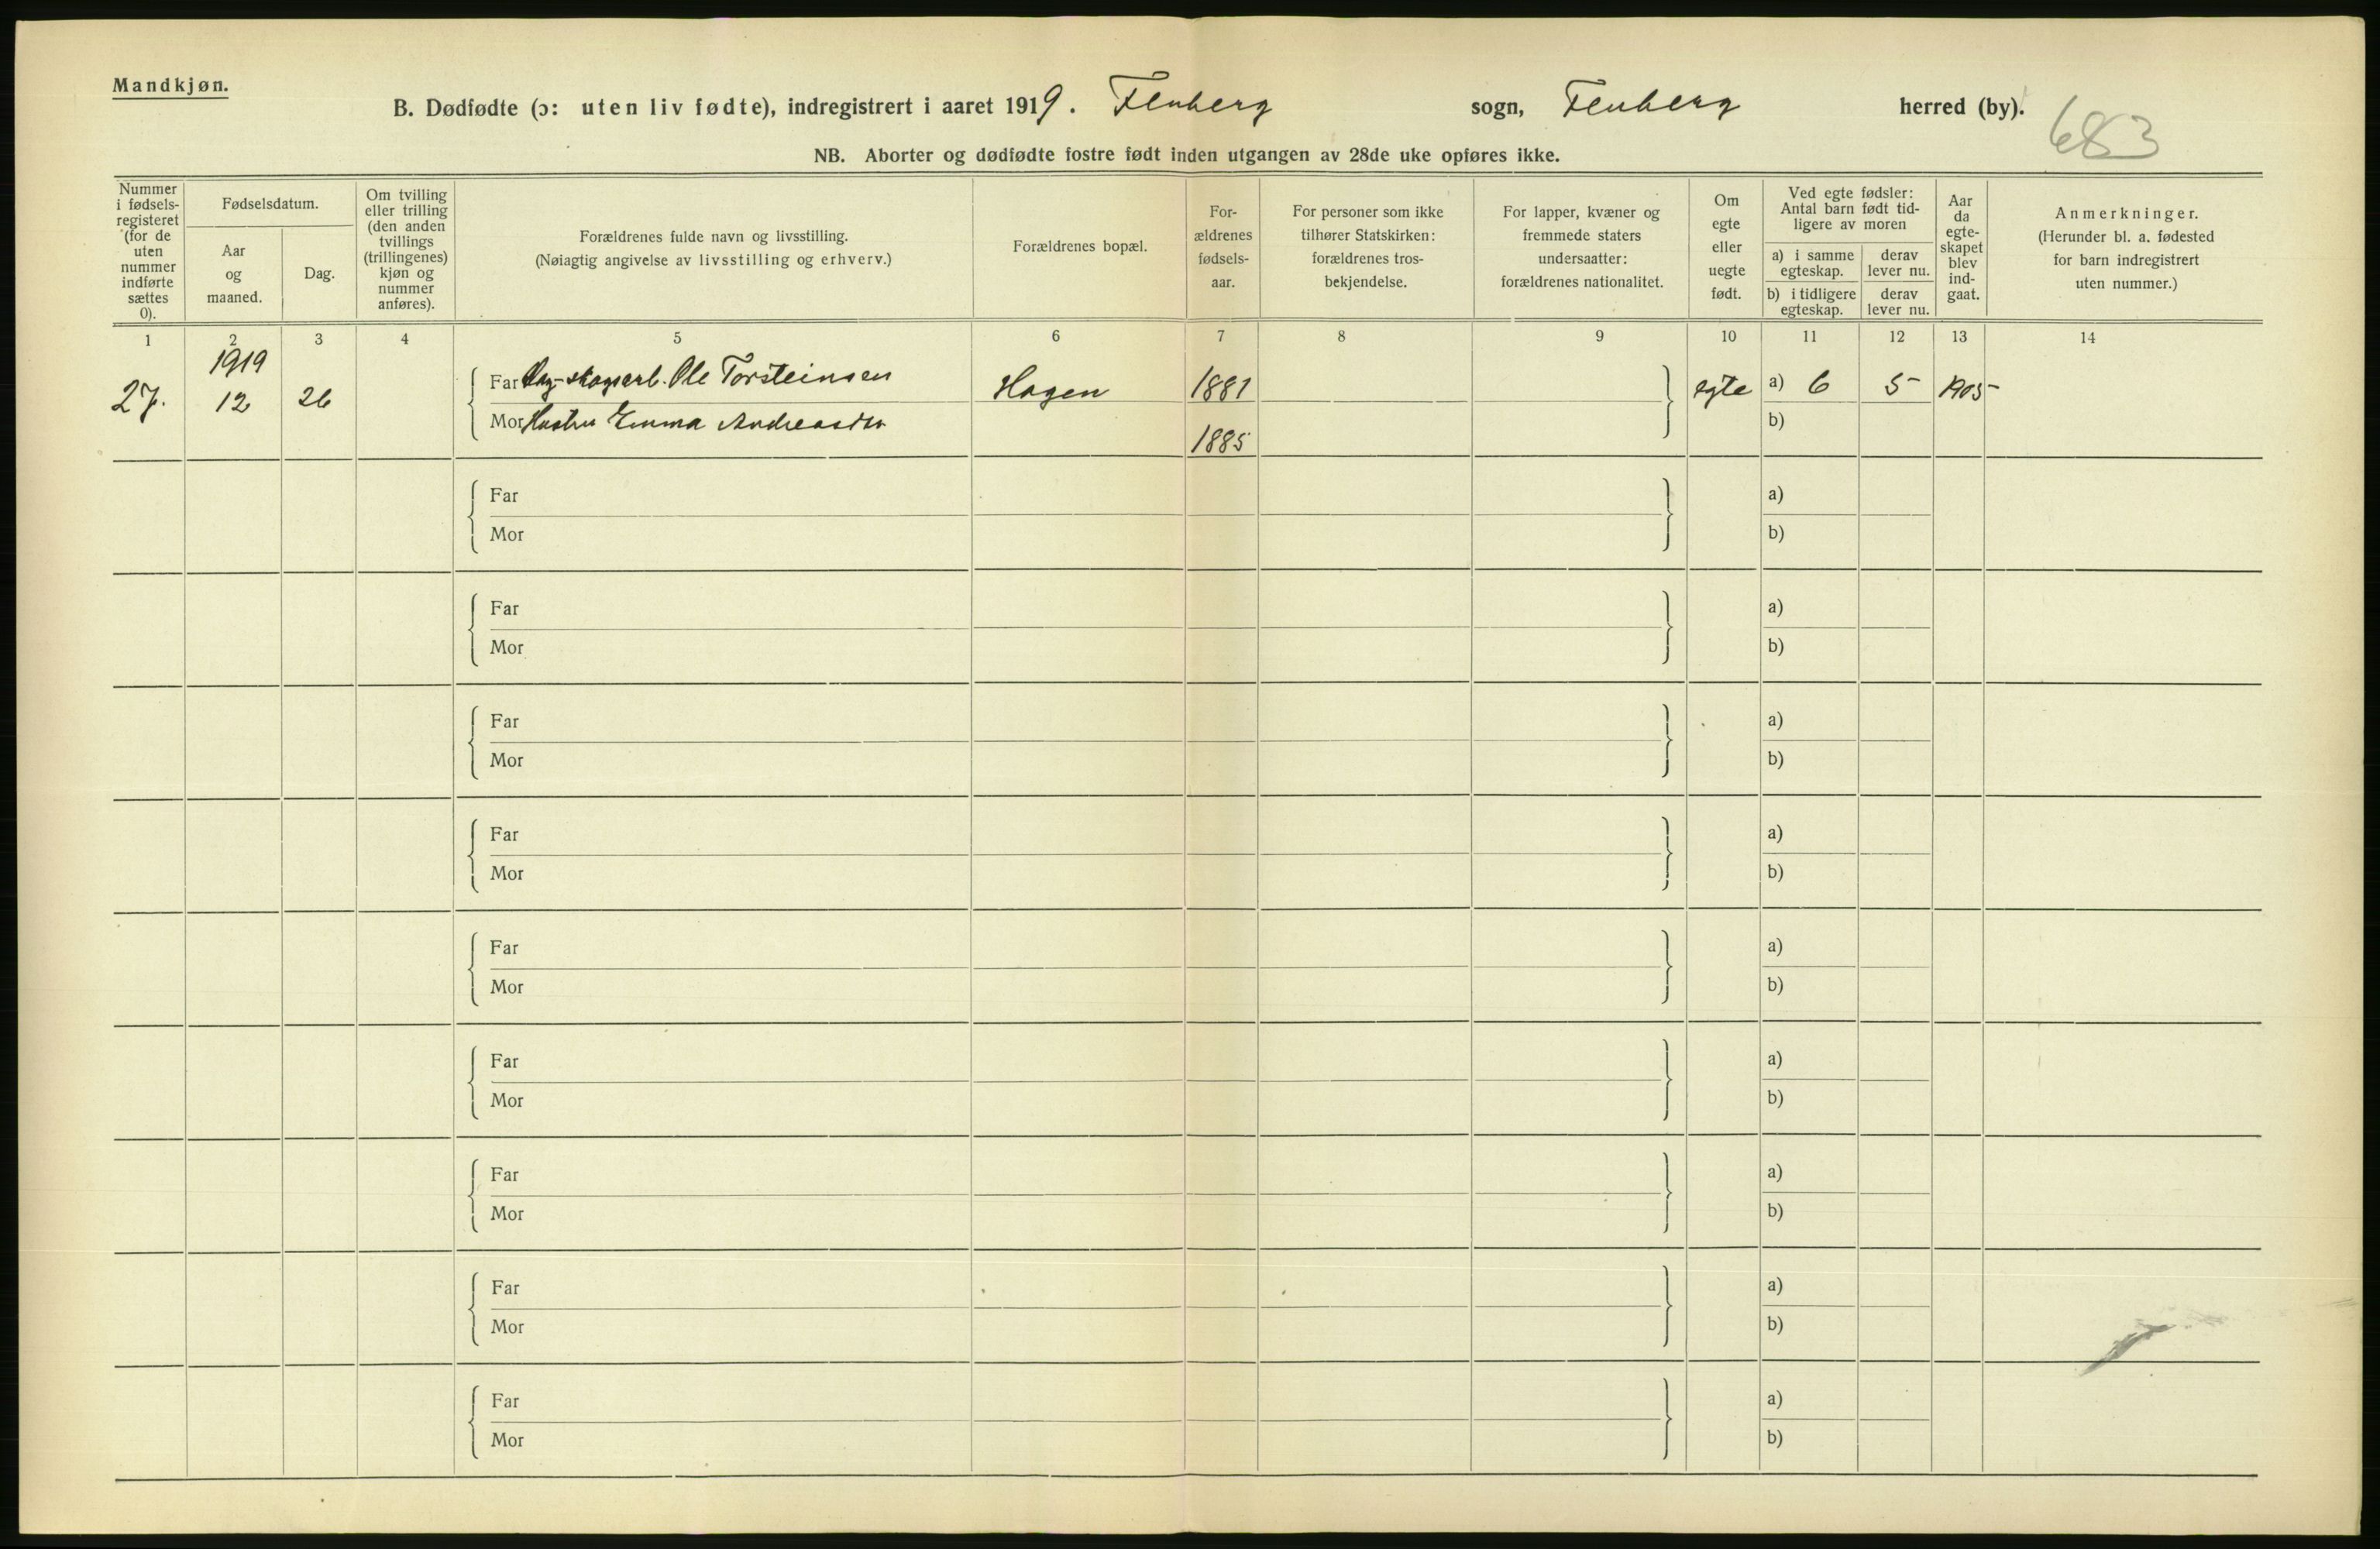 Mandkjøn.
B. Dødfødte (ɔ: uten liv fødte), indregistrert i aaret 1919. Flesberg sogn, Flesberg herred (by).
683
NB. Aborter og dødfødte fostre født inden utgangen av 28de uke opføres ikke.
Nummer i fødsels-registeret (for de uten nummer indførte sættes 0).
Fødselsdatum.
Aar og maaned.
Dag.
Om tvilling eller trilling (den anden tvillings (trillingenes) kjøn og nummer anføres).
Forældrenes fulde navn og livsstilling.
(Nøiagtig angivelse av livsstilling og erhverv.)
Forældrenes bopæl.
For-ældrenes fødsels-aar.
For personer som ikke tilhører Statskirken: forældrenes tros-bekjendelse.
For lapper, kvæner og fremmede staters undersaatter: forældrenes nationalitet.
Om egte eller uegte født.
Ved egte fødsler: Antal barn født tid-ligere av moren
a) i samme egteskap.
derav lever nu.
b) i tidligere egteskap.
derav lever nu.
Aar da egte-skapet blev ind-gaat.
Anmerkninger.
(Herunder bl. a. fødested for barn indregistrert uten nummer.)
1 2 3 4 5 6 7 8 9 10 11 12 13 14
1919
27. 12 26 Far Dag- skogsarb. Ole Torsteinsen Hagen 1881 egte a) 6 5 1905
Mor Hustru Emma Andreasdtr 1885 b)
Far a)
Mor b)
Far a)
Mor b)
Far a)
Mor b)
Far a)
Mor b)
Far a)
Mor b)
Far a)
Mor b)
Far a)
Mor b)
Far a)
Mor b)
Far a)
Mor b)